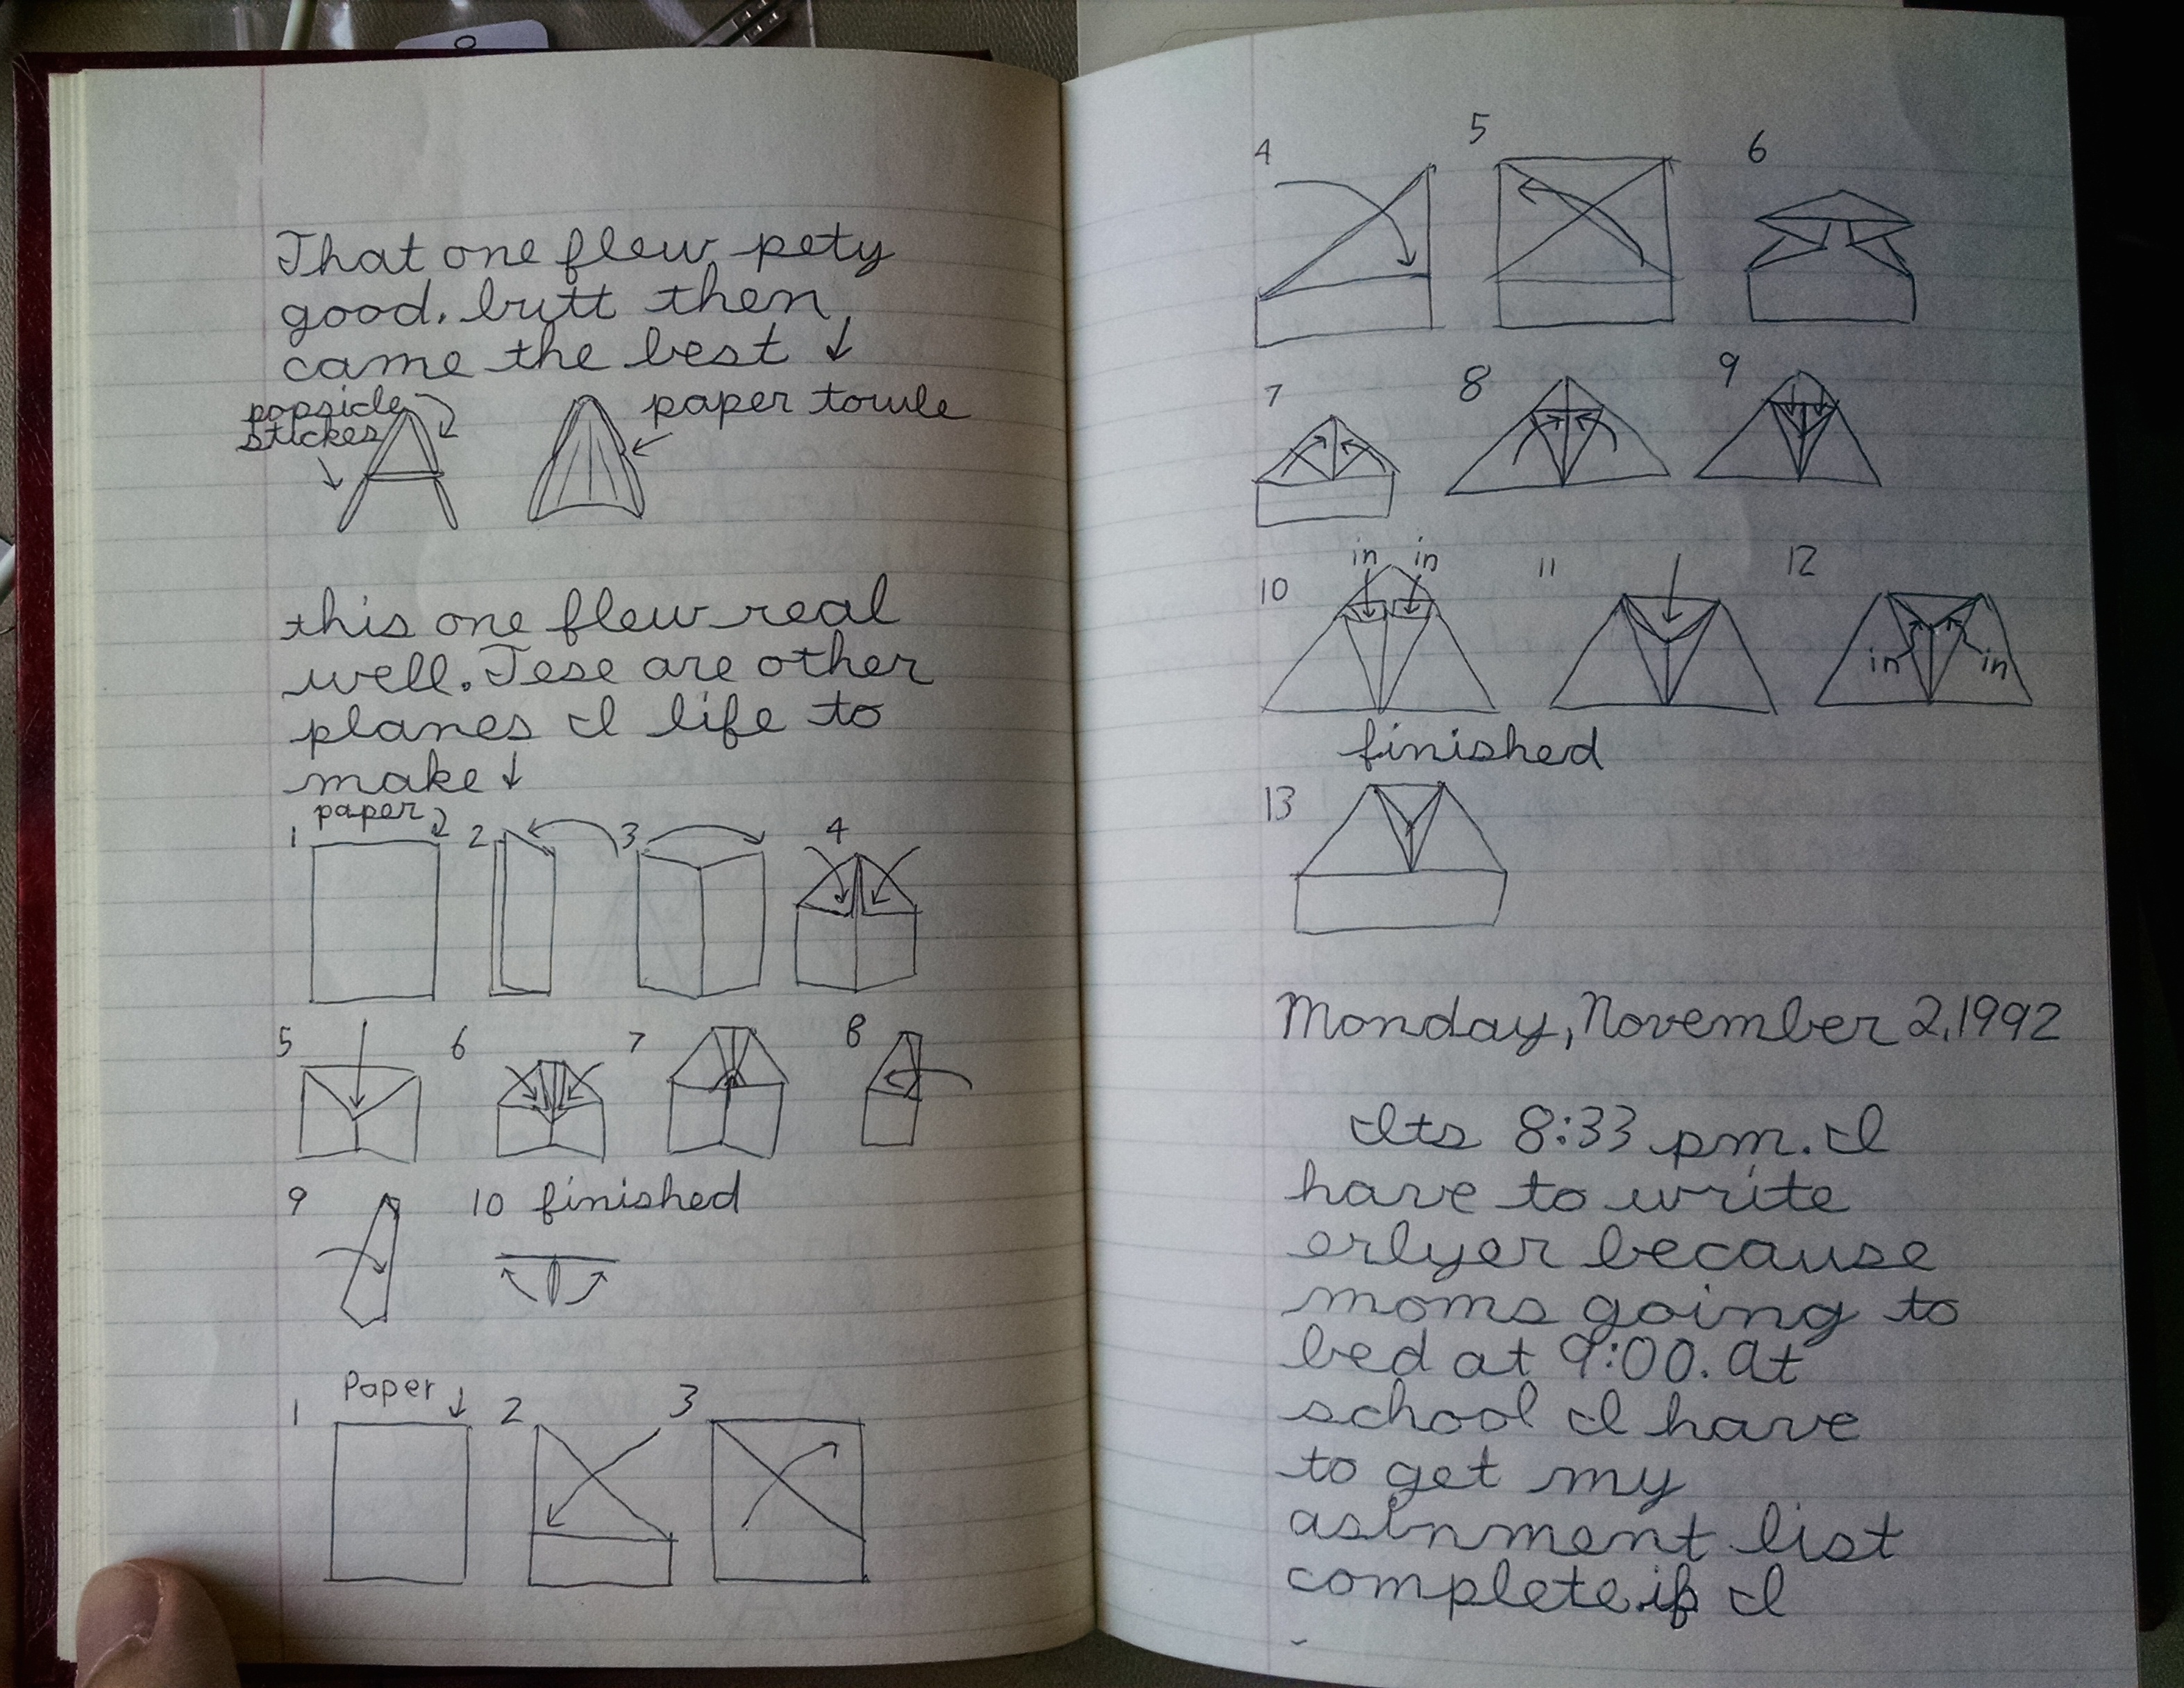 That one flew pety
good. butt then
came the best ↓
popsicle
stickes
paper towle
this one flew real
well. Tese are other
planes I life to
make ↓
paper
1 2 3 4
5 6 7 8
9 10 finished
Paper ↓
1 2 3
4 5 6
7 8 9
in in
10 11 12
in in
finished
13
Monday, November 2, 1992
Its 8:33 pm. I
have to write
erlyer because
moms going to
bed at 9:00. At
school I have
to get my
asinment list
complete. if I